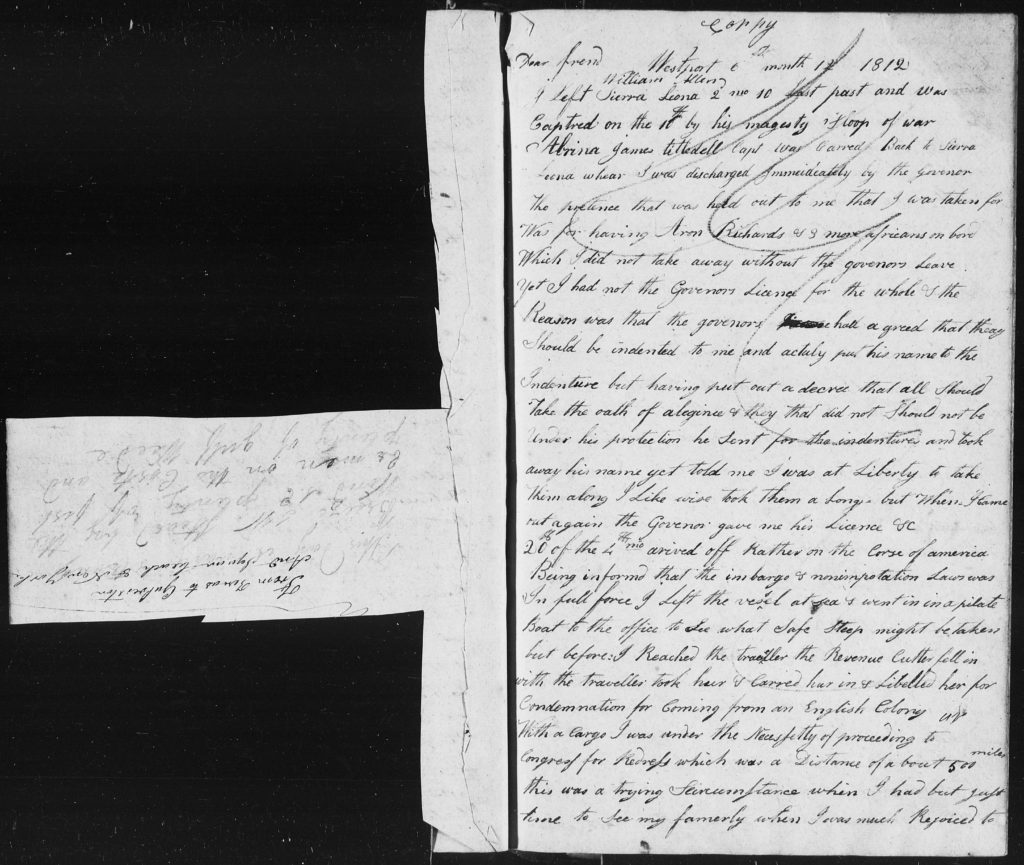 Coppy
Dear frend Westport 6 month 12 1812
William Allen
I left Sierra Leona 2 mo 10 last past and was
Captred on the 11th by his magesty Sloop of war
Abrina James Cap was Carred Back to Sierra
Leona whear I was discharged Immeideately by the Govenor
The pretence that was held out to me that I was taken for
Was for having Aron Richards & 3 more africans on bord
Which I did not take away without the govenors Leave.
Yet I had not the Govenors Licence for the whole & the
Reason was that the govenors had a greed that theay
Should be indented to me and actuly put his name to the
Indenture but having put out a decree that all Should
Take the oath of alegince & they that did not Should not be
Under his protection he Sent for the indentures and took
away his name yet told me I was at Liberty to take
them along I Like wise took them a Long but When I Came
out again the Govenor gave me his Licence &C
20th of the 4th mo arived off Kather on the Corse of america
Being informd that the imbargo & nonimpotation Laws was
In full force I Left the vesel at sea & went in in a pilate
Boat to the office to See what Safe Steep might be taken
but before I Reached the traveller the Revenue Cutter fell in
with the travelles took hur & Carred hur in & Libelled her for
Condemnation for Coming from an English Colony
With a Cargo I was under the Necessity of proceeding to
Congress for Redress which was a Distance of about 500 miles
this was a trying Scircumstance when I had but gust
time to See my famerly when I was much Rejoiced to
From Texas to Galveston
And Squan beach & New York